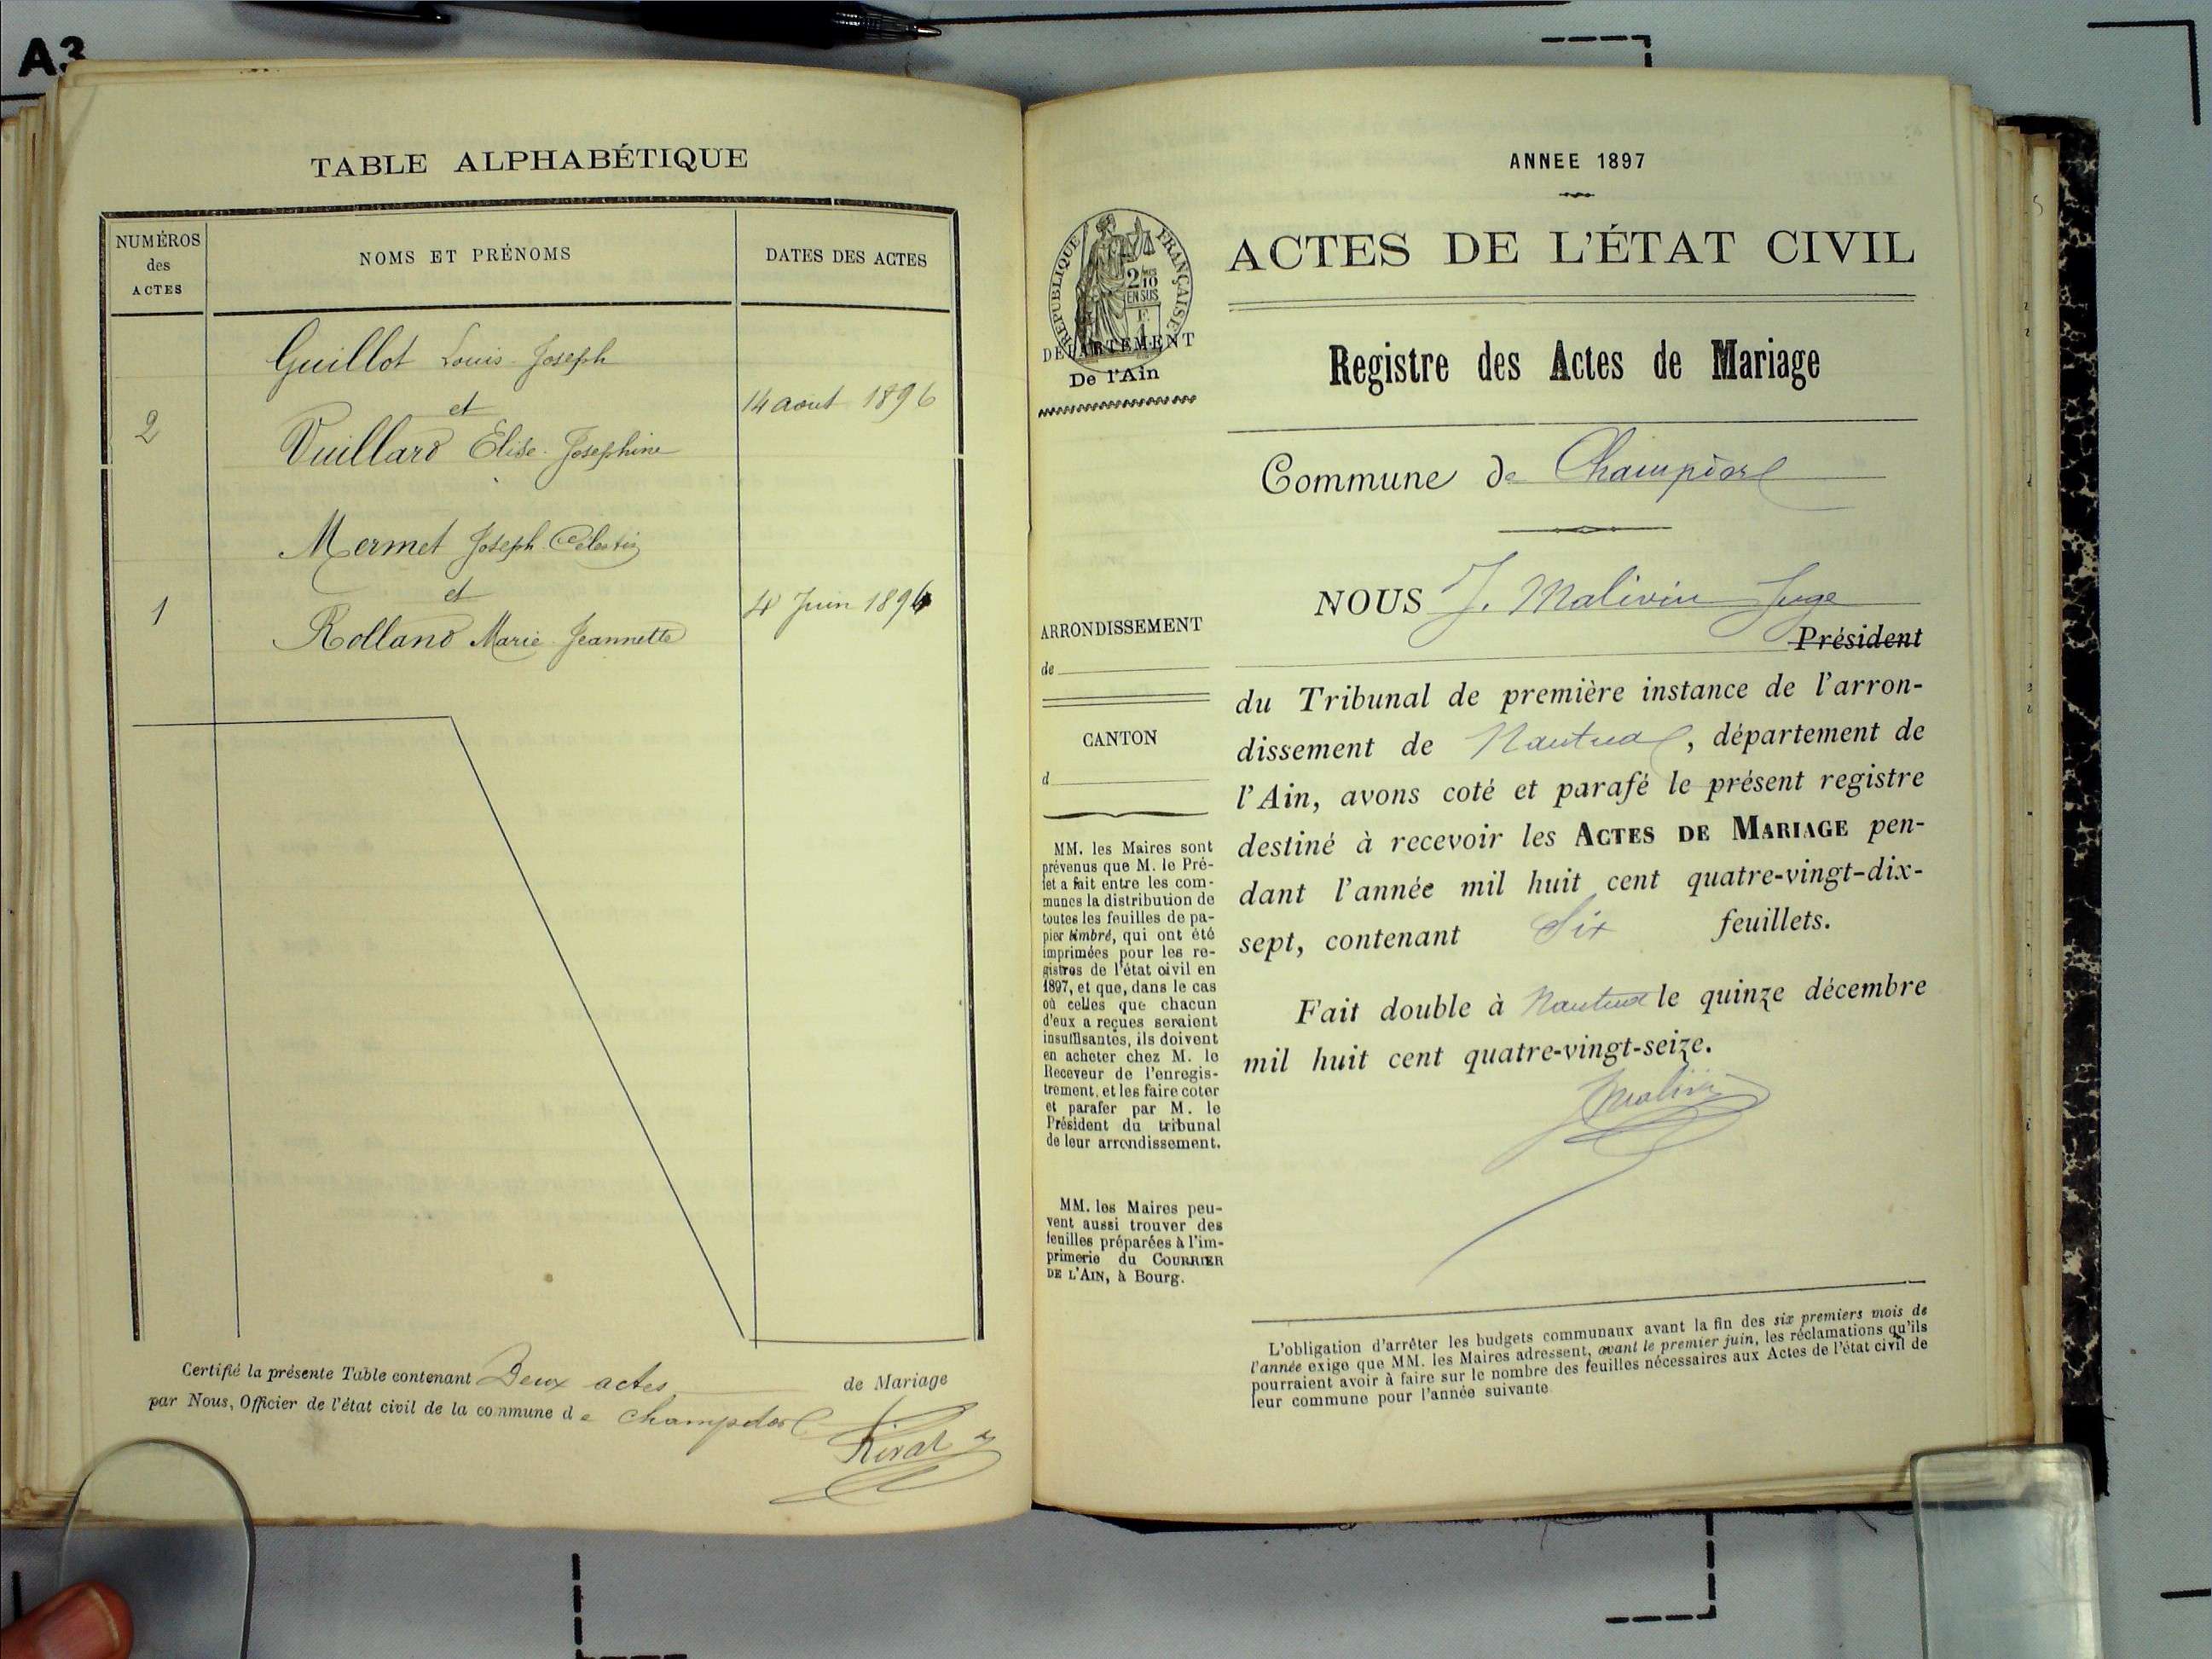 A3
TABLE ALPHABÉTIQUE
NUMÉROS
des
ACTES
NOMS ET PRÉNOMS
DATES DES ACTES
Guillot Louis Joseph
et
2
14 aout 1896
Vuillard Elise Josephine
Mermet Joseph Célestin
et
1
4 Juin 1896
Rolland Marie Jeannette
Certifié la présente Table contenant Deux actes de Mariage
par Nous, Officier de l'état civil de la commune de Champdor
ANNEE 1897
RÉPUBLIQUE FRANÇAISE
2 10
EN SUS
DÉPARTEMENT
De l'Ain
ACTES DE L'ÉTAT CIVIL
Registre des Actes de Mariage
Commune de Champdor
ARRONDISSEMENT
de
CANTON
d
MM. les Maires sont
prévenus que M. le Pré-
fet a fait entre les com-
munes la distribution de
toutes les feuilles de pa-
pier timbré, qui ont été
imprimées pour les re-
gistres de l'état civil en
1897, et que, dans le cas
où celles que chacun
d'eux a reçues seraient
insuffisantes, ils doivent
en acheter chez M. le
Receveur de l'enregis-
trement, et les faire coter
et parafer par M. le
Président du tribunal
de leur arrondissement.
MM. les Maires peu-
vent aussi trouver des
feuilles préparées à l'im-
primerie du COURRIER
DE L'AIN, à Bourg.
NOUS J. Malivin Juge
Président
du Tribunal de première instance de l'arron-
dissement de Nantua, département de
l'Ain, avons coté et parafé le présent registre
destiné à recevoir les ACTES DE MARIAGE pen-
dant l'année mil huit cent quatre-vingt-dix-
sept, contenant Six feuillets.
Fait double à Nantua le quinze décembre
mil huit cent quatre-vingt-seize.
J Malivin
L'obligation d'arrêter les budgets communaux avant la fin des six premiers mois de
l'année exige que MM. les Maires adressent, avant le premier juin, les réclamations qu'ils
pourraient avoir à faire sur le nombre des feuilles nécessaires aux Actes de l'état civil de
leur commune pour l'année suivante